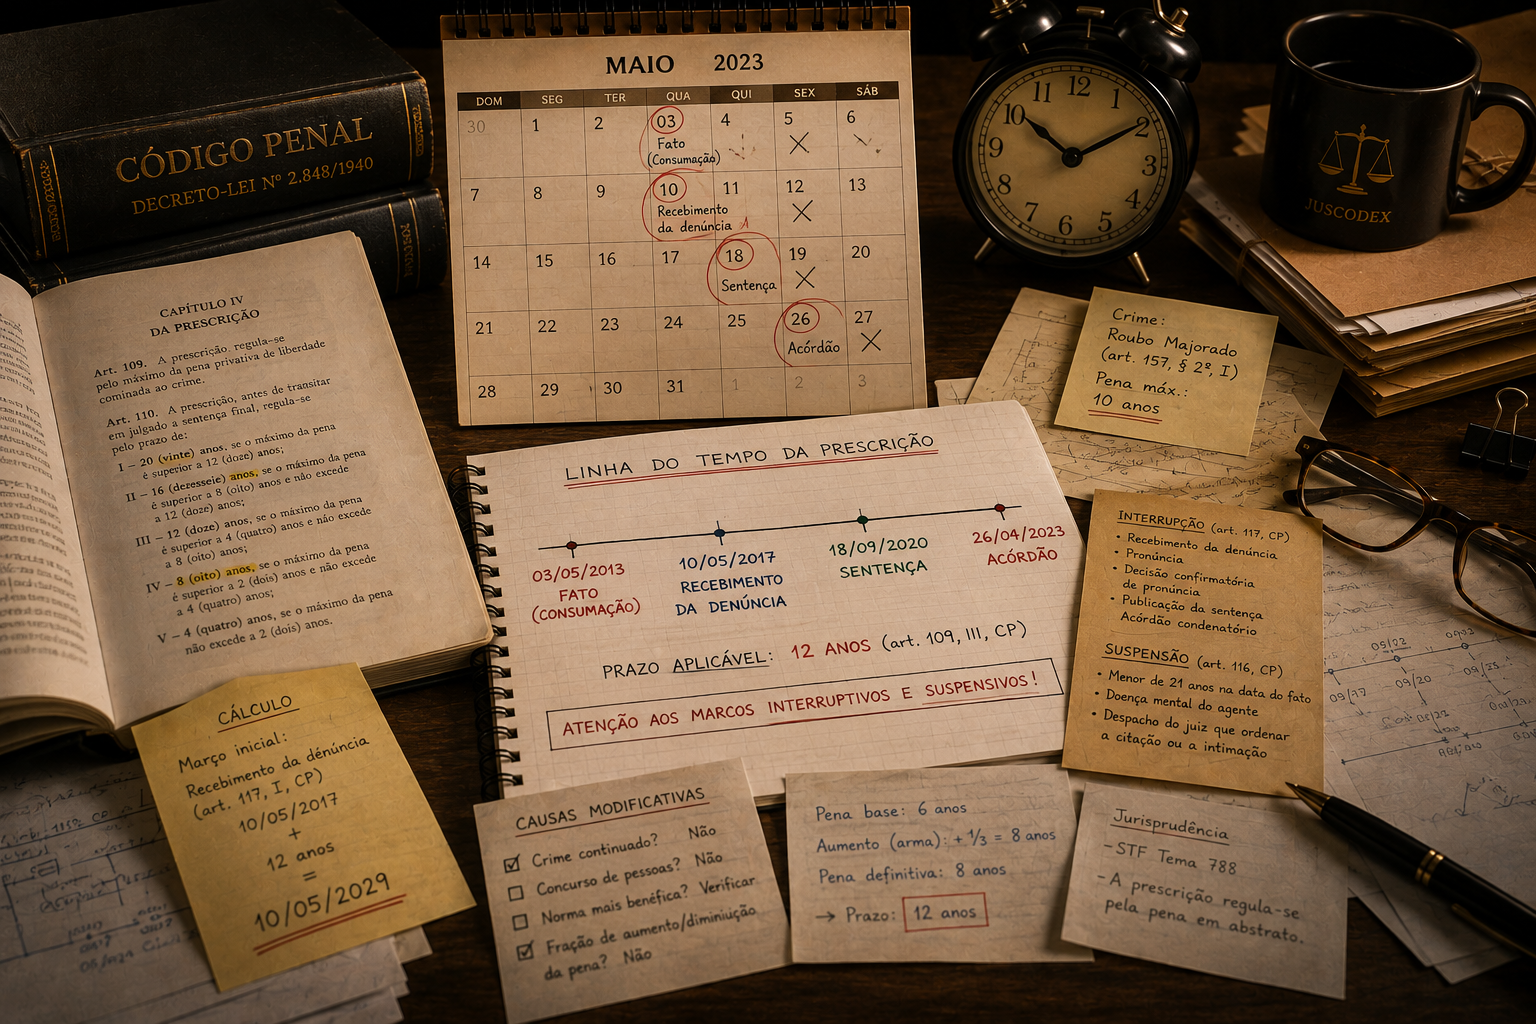 CÓDIGO PENAL
DECRETO-LEI Nº 2.848/1940
MAIO 2023
DOM SEG TER QUA QUI SEX SÁB
30 1 2 03 4 5 6
Fato
(Consumação)
7 8 9 10 11 12 13
Recebimento
da denúncia A
14 15 16 17 18 19 20
Sentença
21 22 23 24 25 26 27
Acórdão
28 29 30 31 1 2 3
12 1 2 3 4 5 6 7 8 9 10 11
JUSCODEX
CAPÍTULO IV
DA PRESCRIÇÃO
Art. 109. A prescrição regula-se
pelo máximo da pena privativa de liberdade
cominada ao crime.
Art. 110. A prescrição, antes de transitar
em julgado a sentença final, regula-se
pelo prazo de:
I – 20 (vinte) anos, se o máximo da pena
é superior a 12 (doze) anos;
II – 16 (deresseie) anos, se o máximo da pena
é superior a 8 (oito) anos e não excede
a 12 (doze) anos;
III – 12 (doze) anos, se o máximo da pena
é superior a 4 (quatro) anos e não excede
a 8 (oito) anos;
IV – 8 (oito) anos, se o máximo da pena
é superior a 2 (dois) anos e não excede
a 4 (quatro) anos;
V – 4 (quatro) anos, se o máximo da pena
não excede a 2 (dois) anos.
Crime:
Roubo Majorado
(art. 157, § 2º, I)
Pena máx.:
10 anos
LINHA DO TEMPO DA PRESCRIÇÃO
03/05/2013
FATO
(CONSUMAÇÃO)
10/05/2017
RECEBIMENTO
DA DENÚNCIA
18/09/2020
SENTENÇA
26/04/2023
ACÓRDÃO
PRAZO APLICÁVEL: 12 ANOS (art. 109, III, CP)
ATENÇÃO AOS MARCOS INTERRUPTIVOS E SUSPENSIVOS!
INTERRUPÇÃO (art. 117, CP)
• Recebimento da denúncia
• Pronúncia
• Decisão confirmatória
de pronúncia
• Publicação da sentença
Acórdão condenatório
SUSPENSÃO (art. 116, CP)
• Menor de 21 anos na data do fato
• Doença mental do agente
• Despacho do juiz que ordenar
a citação ou a intimação
CÁLCULO
Março inicial:
Recebimento da dénúncia
(art. 117, I, CP)
10/05/2017
+
12 anos
=
10/05/2029
CAUSAS MODIFICATIVAS
Crime continuado? Não
Concurso de pessoas? Não
Norma mais benéfica? Verificar
Fração de aumento/diminuição
da pena? Não
Pena base: 6 anos
Aumento (arma): + 1/3 = 8 anos
Pena definitiva: 8 anos
→ Prazo: 12 anos
Jurisprudência
– STF Tema 788
– A prescrição regula-se
pela pena em abstrato.
05/22
09/17 09/20